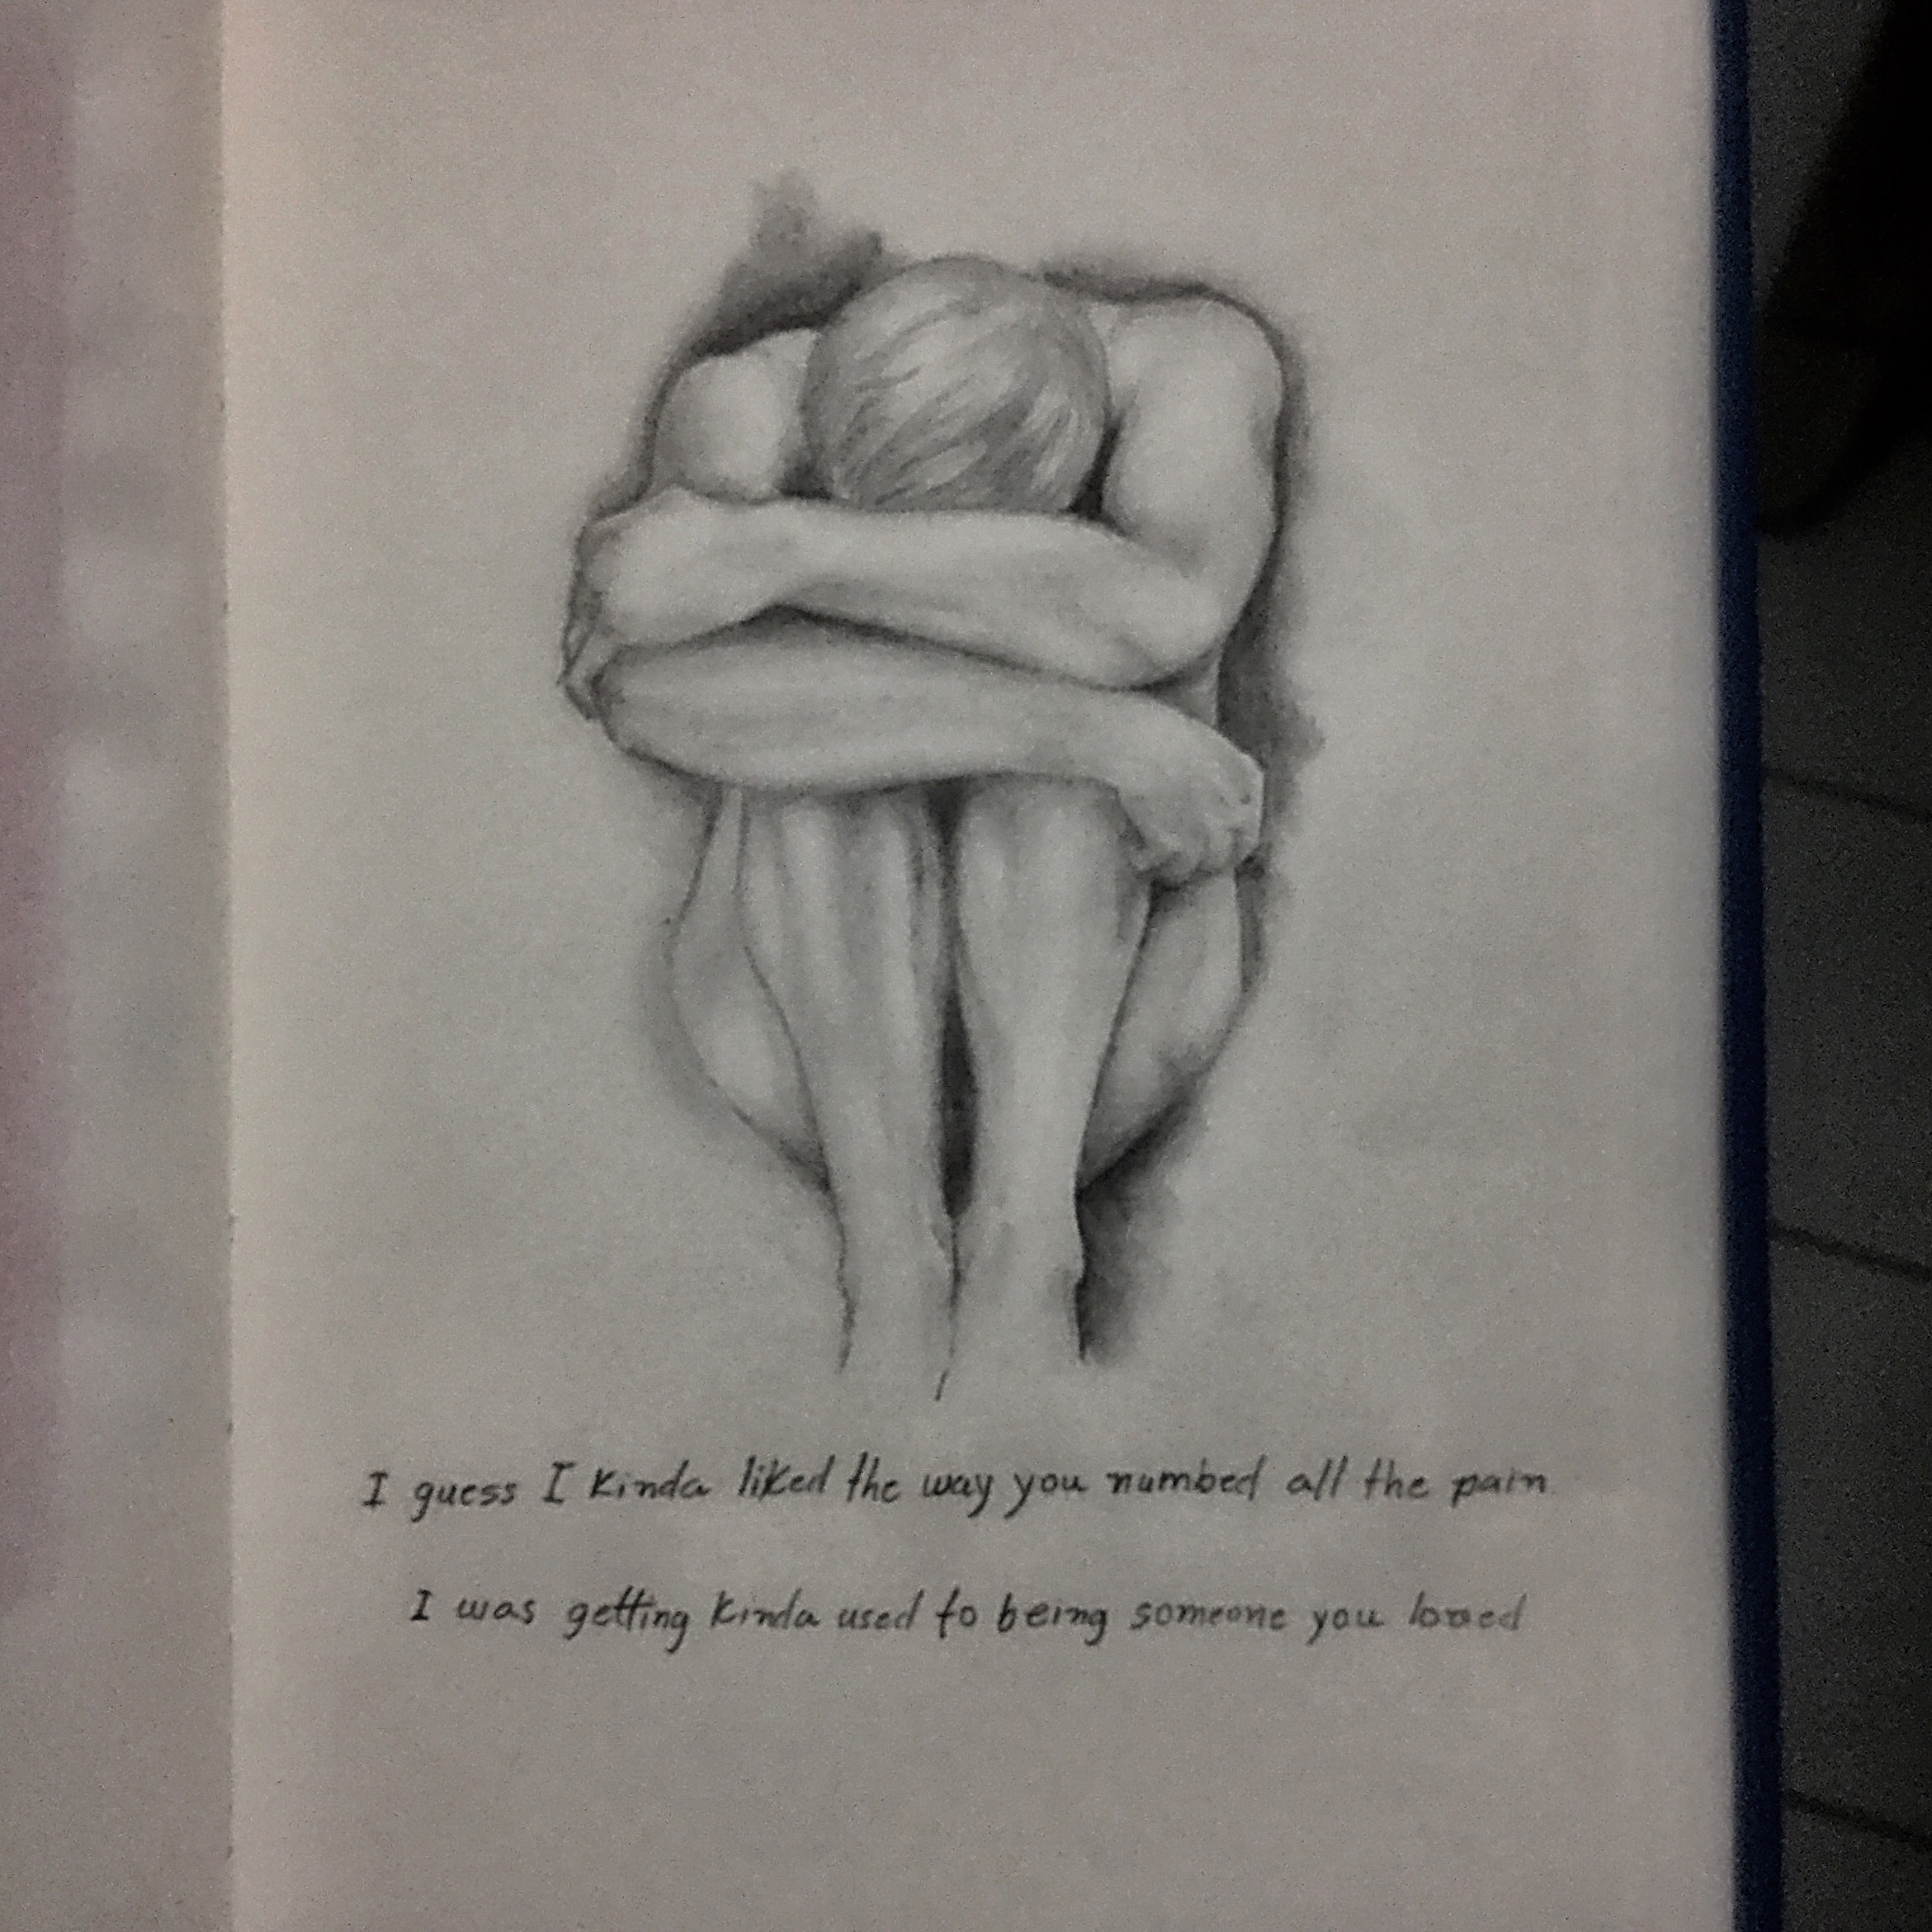 I guess I kinda liked the way you numbed all the pain
I was getting kinda used to being someone you loved